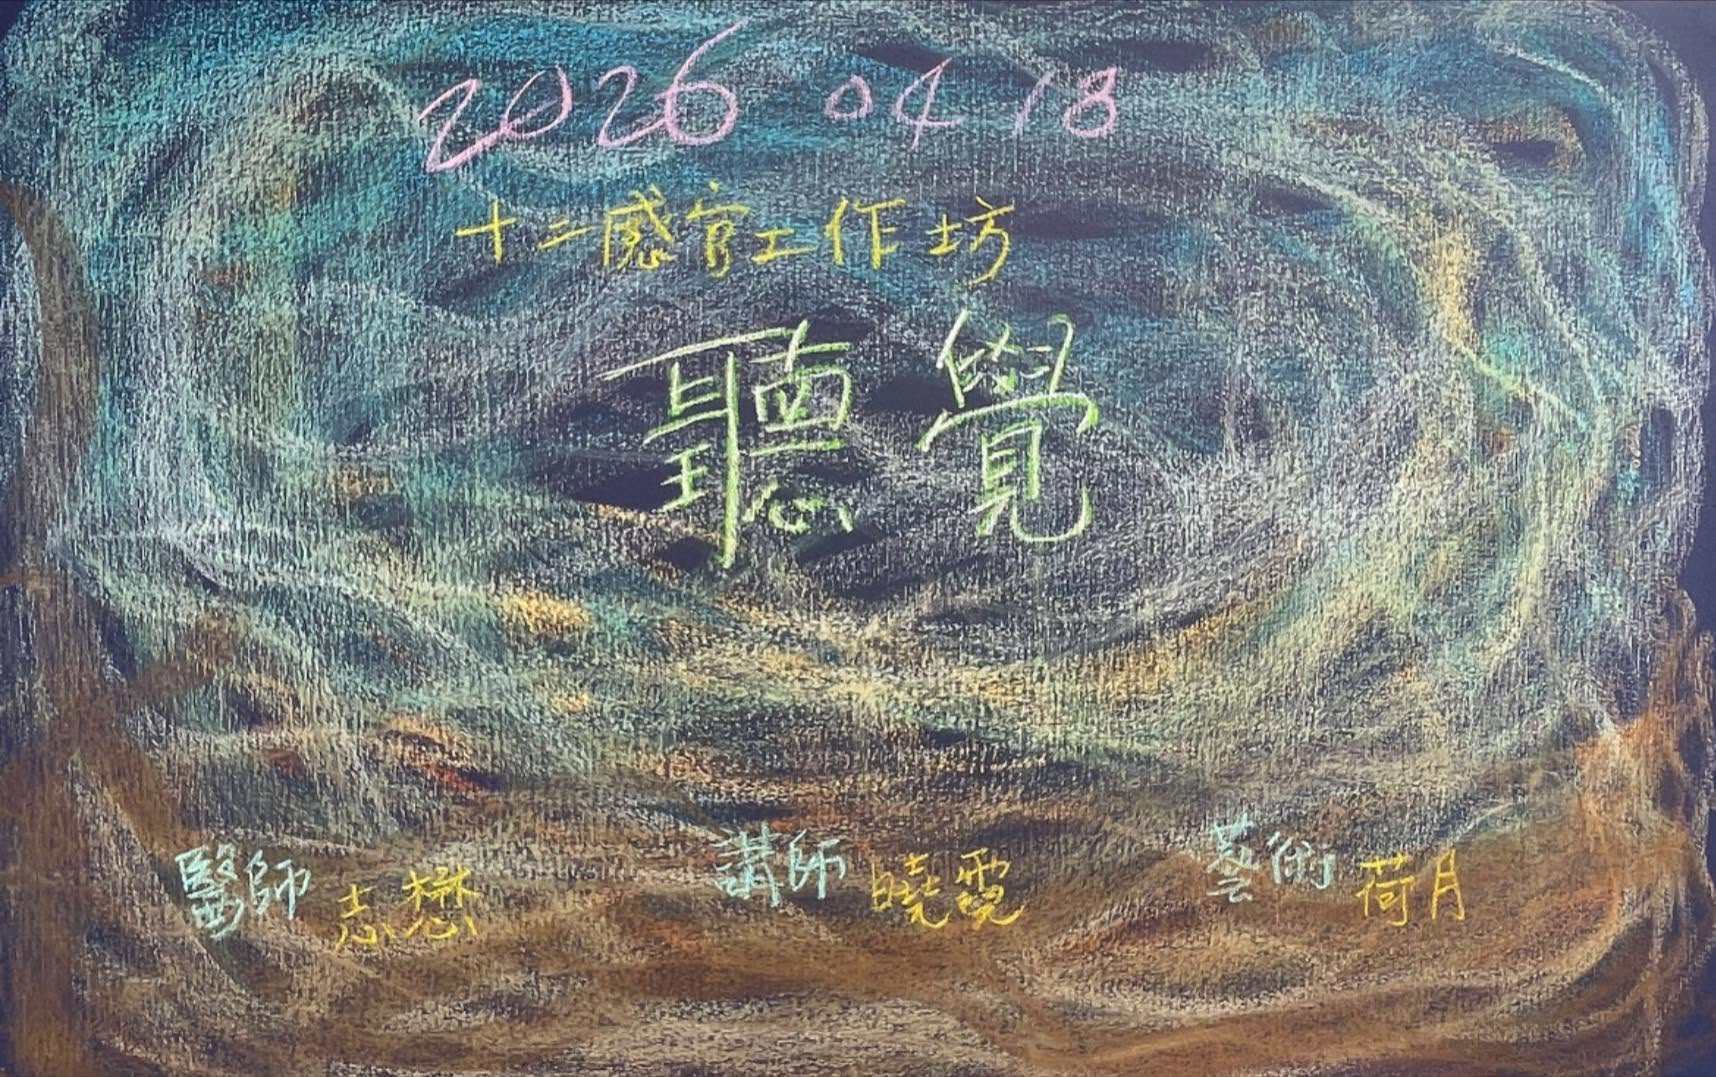 2026 04 18
十二感官工作坊
聽覺
醫師 志懋 講師 曉霓 藝術 荷月